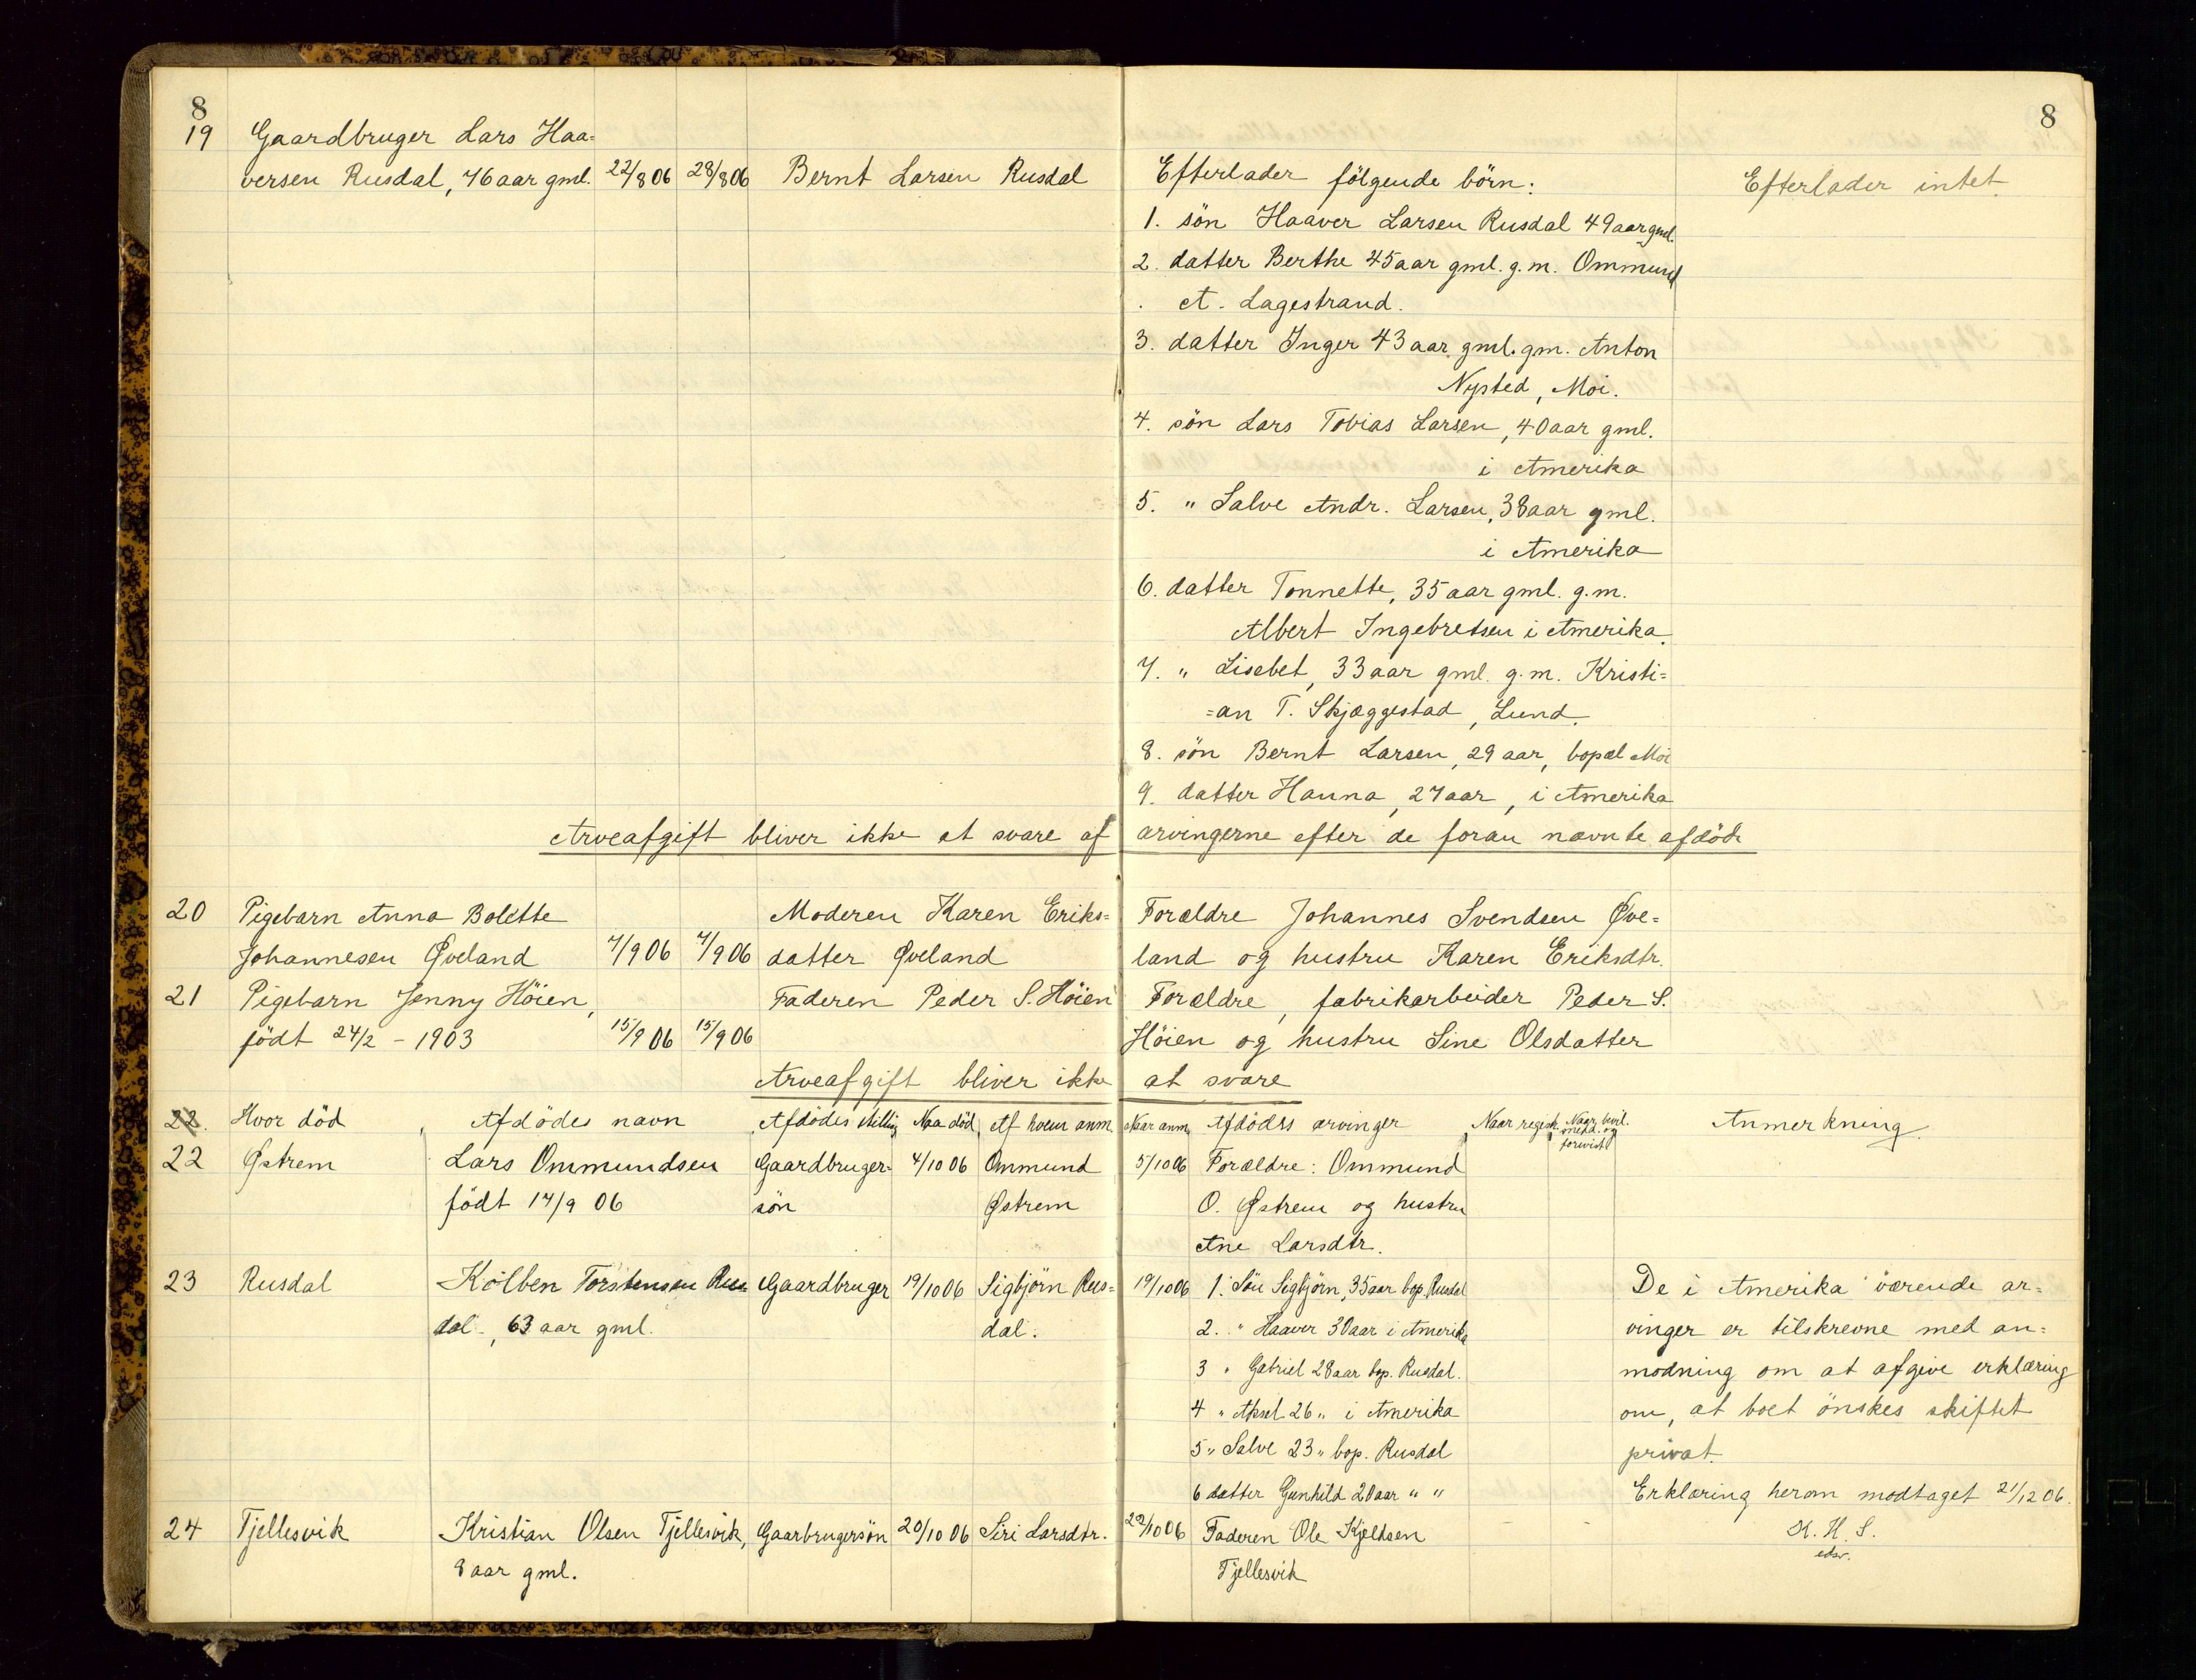 8
8
19 Gaardbruger Lars Haa=
versen Rusdal, 76 aar gml. 22/8 06 28/8 06 Bernt Larsen Rusdal Efterlader følgende börn: Efterlader intet.
1. sön Haaver Larsen Rusdal 49 aar gml.
2. datter Berthe 45 aar gml. g.m. Ommund
A. Lagestrand.
3. datter Inger 43 aar gml. gm. Anton
Nysted, Moi.
4. sön Lars Tobias Larsen, 40 aar gml.
i Amerika
5. " Salve Andr. Larsen, 38 aar gml.
i Amerika
6. datter Tonnette, 35 aar gml. g.m.
Albert Ingebretsen i Amerika.
7. " Lisebet, 33 aar gml. g.m. Kristi=
=an T. Skjæggestad, Lund.
8. sön Bernt Larsen, 29 aar, bopæl Moi
9. datter Hanna, 27 aar, i Amerika
Arveafgift bliver ikke at svare af arvingerne efter de foran nævnte afdöde
20 Pigebarn Anna Bolette Moderen Karen Eriks= Forældre Johannes Svendsen Øve=
Johannesen Øveland 7/9 06 7/9 06 datter Øveland land og hustru Karen Eriksdtr.
21 Pigebarn Jenny Höien, Faderen Peder S. Höien Forældre, fabrikarbeider Peder S.
födt 24/2 - 1903 15/9 06 15/9 06 Höien og hustru Sine Olsdatter
Arveafgift bliver ikke at svare
22. Hvor död Afdödes navn Afdödes stilling Naa död Af hvem anm. Naar anm. Afdödes arvinger Naar regist. Naar bevil. medd. og forevist Anmerkning.
22 Østrem Lars Ommundsen Gaardbruger- 4/10 06 Ommund 5/10 06 Forældre: Ommund
födt 17/9 06 sön Østrem O. Østrem og hustru
Ane Larsdtr.
23 Rusdal Kolben Torstensen Rus= Gaardbruger 19/10 06 Sigbjörn Rus= 19/10 06 1. Sön Sigbjörn, 35 aar bop. Rusdal De i Amerika værende ar=
dal, 63 aar gml. dal. 2. " Haaver 30 aar i Amerika vinger er tilskrevne med an=
3 " Gabriel 28 aar bop. Rusdal. modning om at afgive erklæring
4 " Aksel 26 " i Amerika om, at boet önskes skiftet
5 " Salve 23 " bop. Rusdal privat.
6 datter Gunhild 20 aar " " Erklæring herom modtaget 21/12 06.
24 Tjellesvik Kristian Olsen Tjellesvik, Gaarbrugersön 20/10 06 Siri Larsdtr. 22/10 06 Faderen Ole Kjeldsen K. H. S.
8 aar gml. Tjellesvik